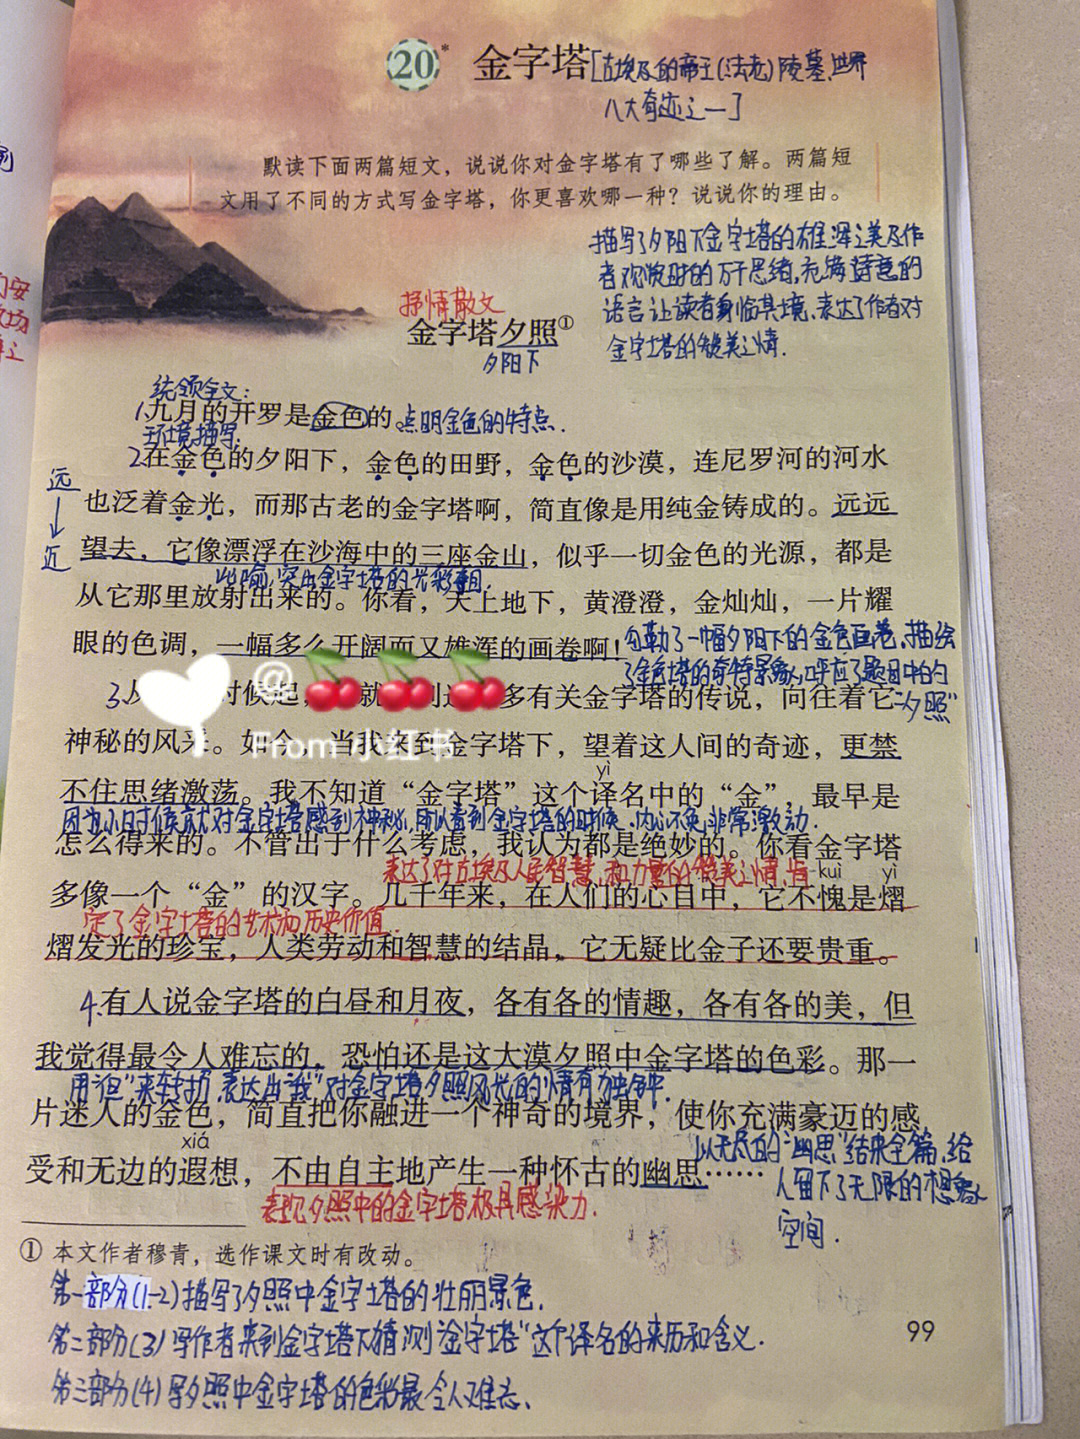 20* 金字塔[古埃及的帝王(法老)陵墓,世界
八大奇迹之一]
默读下面两篇短文，说说你对金字塔有了哪些了解。两篇短
文用了不同的方式写金字塔，你更喜欢哪一种？说说你的理由。
描写了夕阳下金字塔的雄浑之美及作
者观赏时的万千思绪,充满诗意的
语言让读者身临其境、表达了作者对
金字塔的赞美之情.
抒情散文
金字塔夕照①
夕阳下
统领全文:
1.九月的开罗是金色的。点明金色的特点.
环境描写:
2.在金色的夕阳下，金色的田野，金色的沙漠，连尼罗河的河水
也泛着金光，而那古老的金字塔啊，简直像是用纯金铸成的。远远
望去，它像漂浮在沙海中的三座金山，似乎一切金色的光源，都是
远
近
比喻,突出金字塔的光彩夺目.
从它那里放射出来的。你看，天上地下，黄澄澄，金灿灿，一片耀
眼的色调，一幅多么开阔而又雄浑的画卷啊！勾勒了一幅夕阳下的金色画卷、描绘
了金色塔的奇特景象,呼应了题目中的
"夕照"
@🍒🍒🍒
From 小红书
3.从 时候起， 就 到 多有关金字塔的传说，向往着它
神秘的风采。如今，当我来到金字塔下，望着这人间的奇迹，更禁
yì
不住思绪激荡。我不知道“金字塔”这个译名中的“金”，最早是
因为小时候就对金字塔感到神秘,所以看到金字塔的时候,内心不免非常激动.
怎么得来的。不管出于什么考虑，我认为都是绝妙的。你看金字塔
表达了对古埃及人民智慧,和力量的赞美之情,肯
kuì yì
多像一个“金”的汉字。几千年来，在人们的心目中，它不愧是熠
定了金字塔的艺术和历史价值.
熠发光的珍宝，人类劳动和智慧的结晶，它无疑比金子还要贵重。
4.有人说金字塔的白昼和月夜，各有各的情趣，各有各的美，但
我觉得最令人难忘的，恐怕还是这大漠夕照中金字塔的色彩。那一
用"但"来转折,表达出"我"对金字塔夕照风光的情有独钟.
片迷人的金色，简直把你融进一个神奇的境界，使你充满豪迈的感
xiá
受和无边的遐想，不由自主地产生一种怀古的幽思……
以无尽的"幽思"结束全篇,给
人留下了无限的想象
空间.
表现夕照中的金字塔极具感染力.
① 本文作者穆青，选作课文时有改动。
第一部分(1-2)描写了夕照中金字塔的壮丽景色.
第二部分(3)写作者来到金字塔下猜测"金字塔"这个译名的来历和含义.
第三部分(4)写夕照中金字塔的色彩最令人难忘、
99